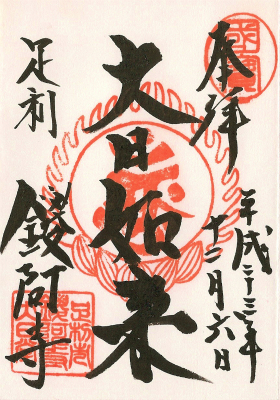 奉拝
平成二十三年
十二月六日
大日如来
足利
鑁阿寺